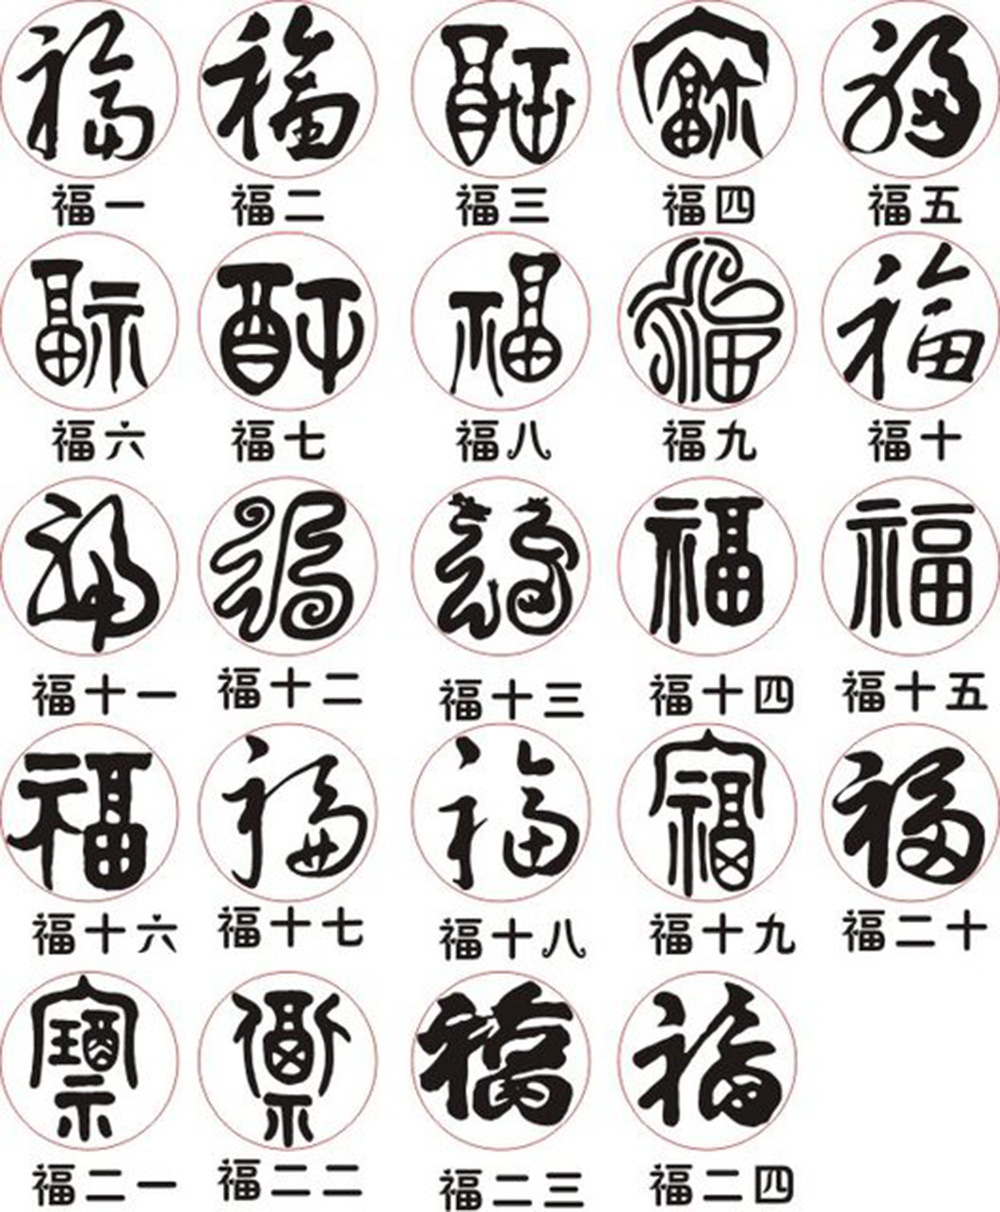 福 福 福 福 福
福一 福二 福三 福四 福五
福 福 福 福 福
福六 福七 福八 福九 福十
福 福 福 福 福
福十一 福十二 福十三 福十四 福十五
福 福 福 福 福
福十六 福十七 福十八 福十九 福二十
福 福 福 福
福二一 福二二 福二三 福二四